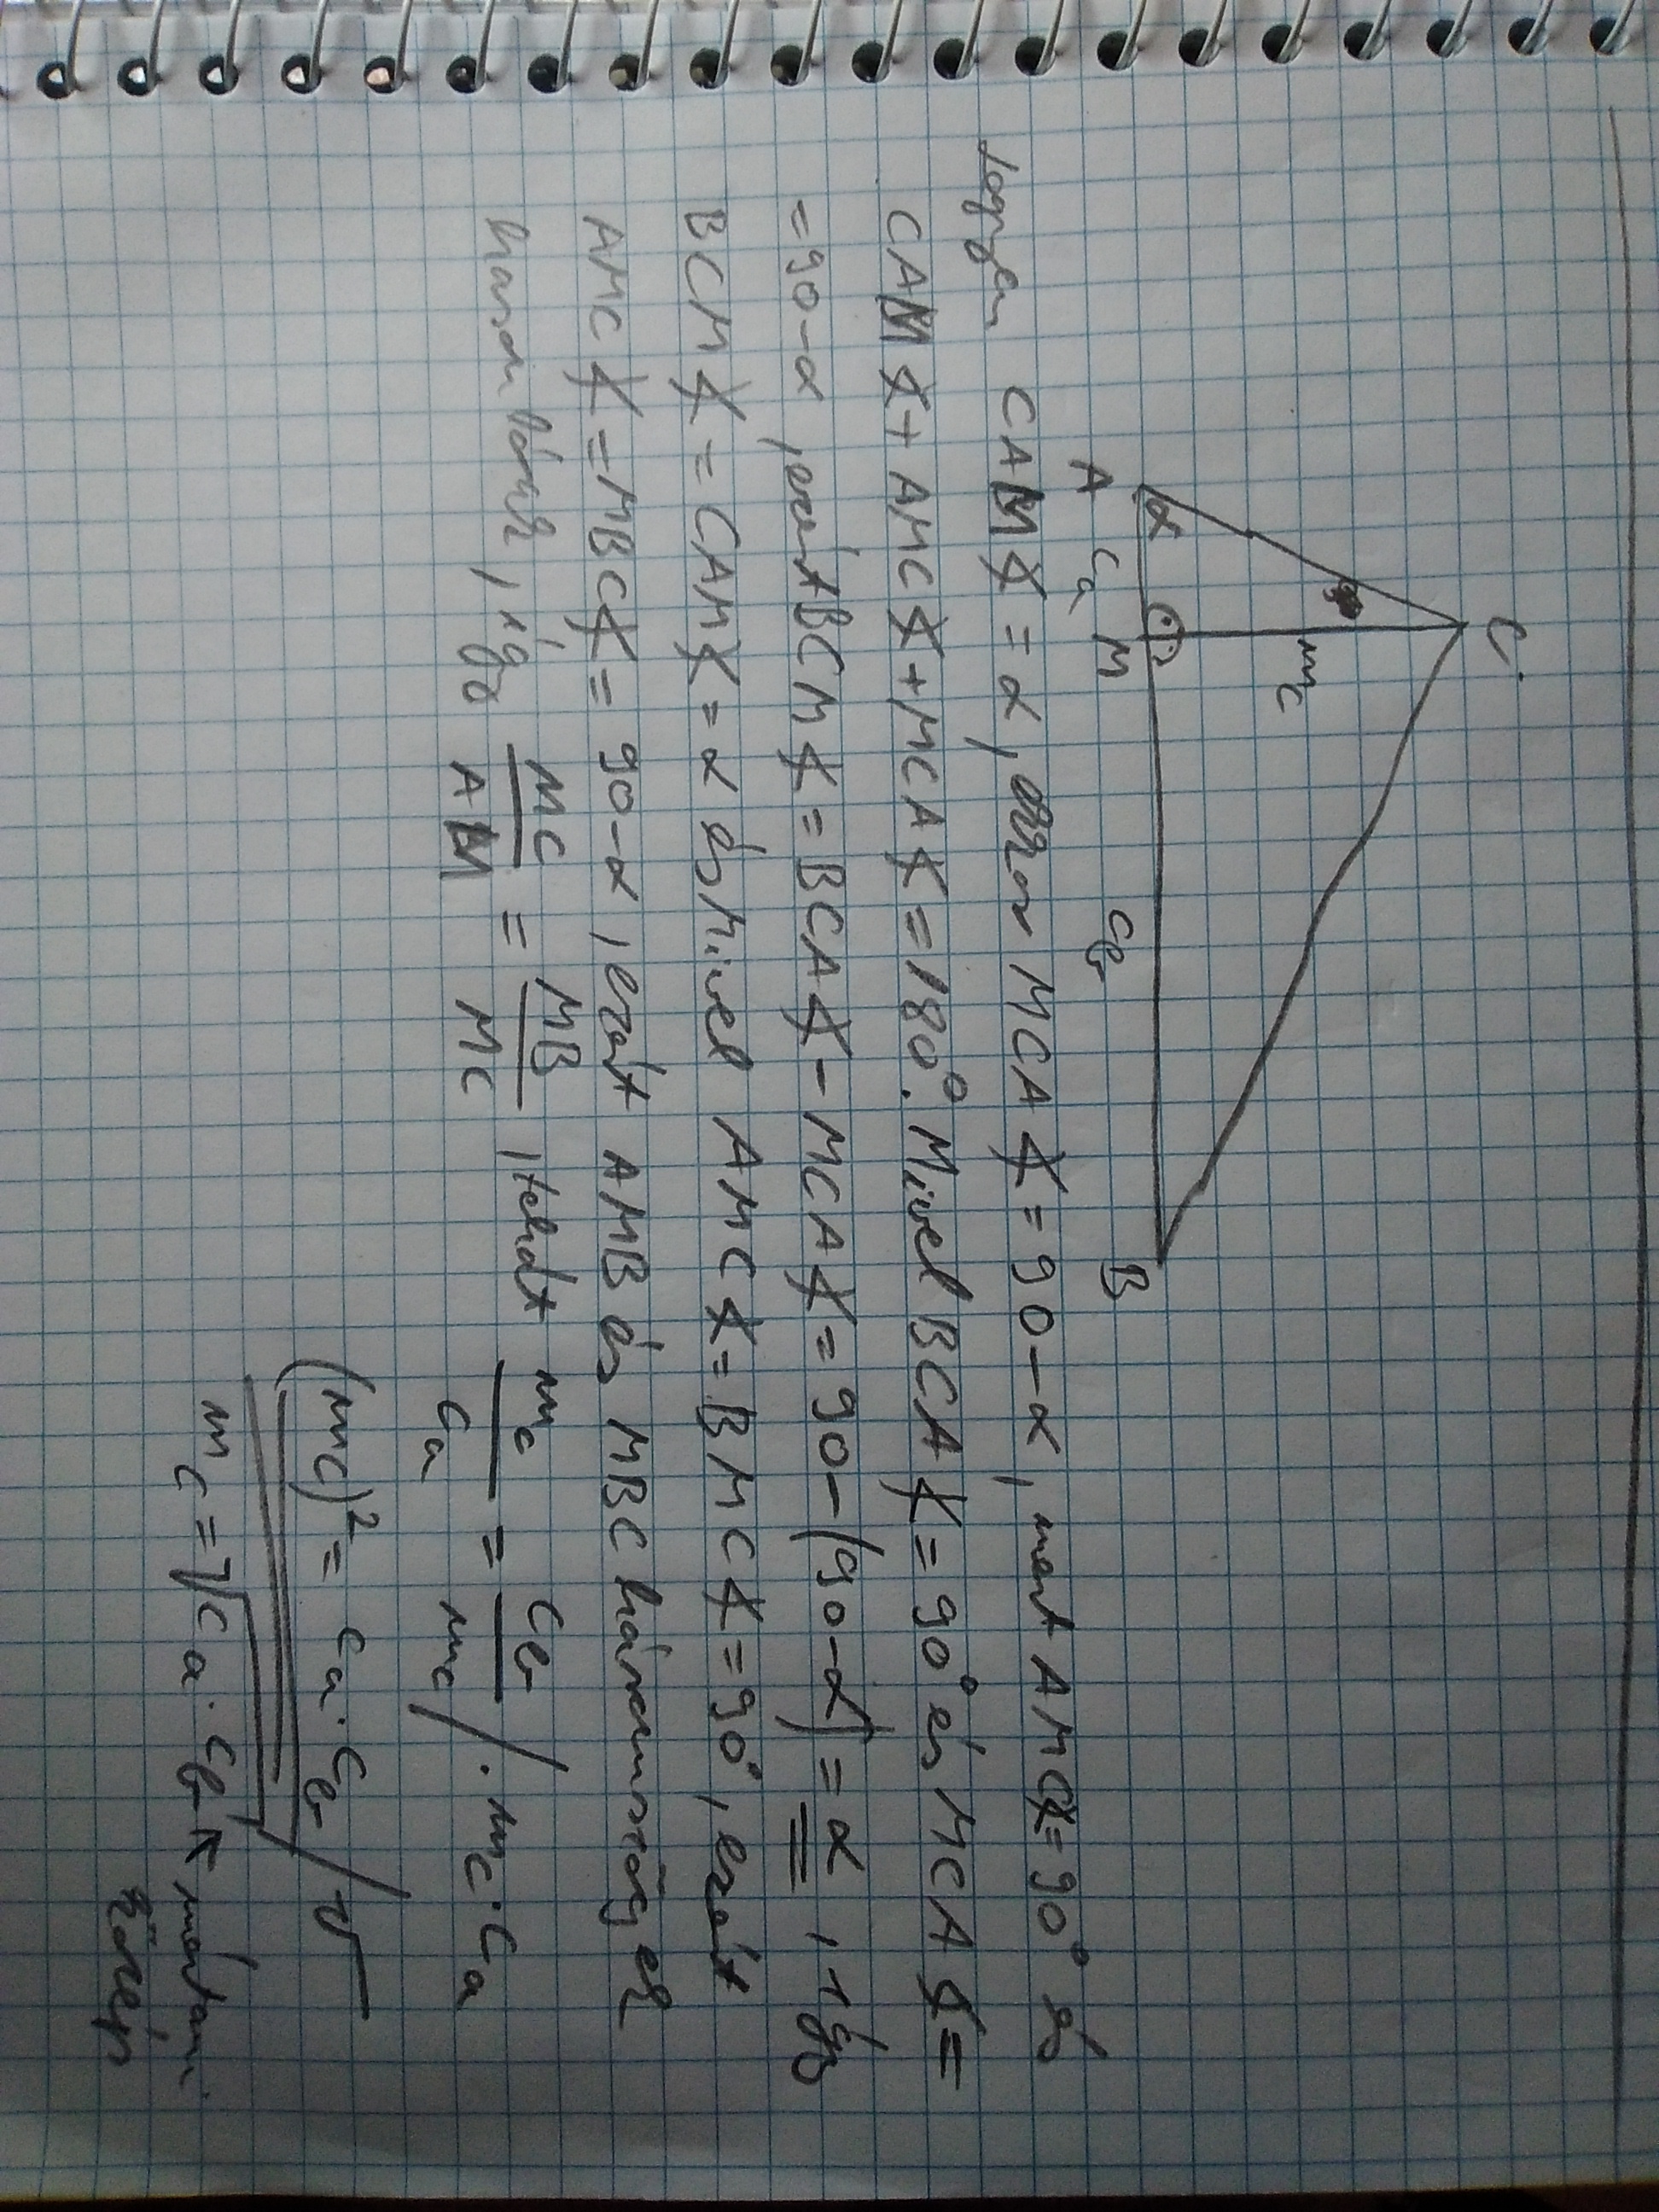 C
α
m_c
A c_a M c_b B
legyen CAM∢ = α, ekkor MCA∢ = 90-α, mert AMC∢ = 90° és
CAM∢ + AMC∢ + MCA∢ = 180°. Mivel BCA∢ = 90° és MCA∢ =
= 90-α, ezért BCM∢ = BCA∢ - MCA∢ = 90-(90-α) = α, így
BCM∢ = CAM∢ = α és Mivel AMC∢ = BMC∢ = 90°, ezért
AMC∢ = MBC∢ = 90-α, ezért AMB és MBC háromszögek
hasonlóak, így MC/AM = MB/MC, tehát m_c/c_a = c_b/m_c /·m_c·c_a
(m_c)² = c_a·c_b /√
m_c = √c_a·c_b ↖ mértani
közép